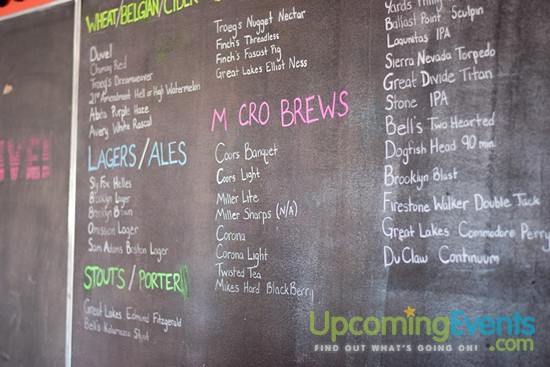 WHEAT/BELGIAN/CIDER
Duvel
Chimay Red
Troeg's Dreamweaver
21st Amendment Hell or High Watermelon
Abita Purple Haze
Avery White Rascal
LAGERS/ALES
Sly Fox Helles
Brooklyn Lager
Brooklyn Brown
Omission Lager
Sam Adams Boston Lager
STOUTS/PORTERS
Great Lakes Edmund Fitzgerald
Bell's Kalamazoo Stout
Troeg's Nugget Nectar
Finch's Threadless
Finch's Fascist Fig
Great Lakes Elliot Ness
M CRO BREWS
Coors Banquet
Coors Light
Miller Lite
Miller Sharps (N/A)
Corona
Corona Light
Twisted Tea
Mikes Hard BlackBerry
Yards
Ballast Point Sculpin
Lagunitas IPA
Sierra Nevada Torpedo
Great Divide Titan
Stone IPA
Bell's Two Hearted
Dogfish Head 90 min.
Brooklyn Blast
Firestone Walker Double Jack
Great Lakes Commodore Perry
DuClaw Continuum
UpcomingEvents.com
FIND OUT WHAT'S GOING ON!